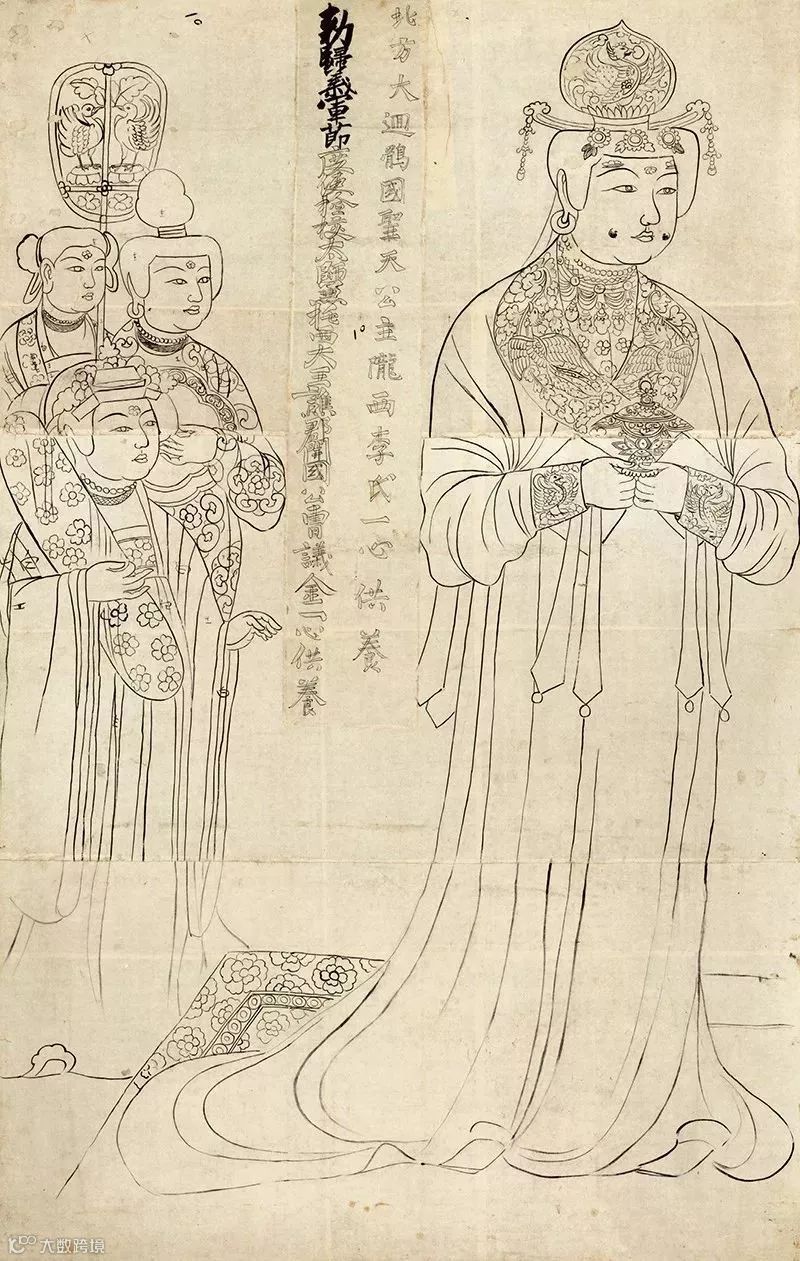 北方大迴鶻國聖天公主隴西李氏一心供養
勑歸義軍節度使檢校太師兼托西大王譙郡開國公曹議金一心供養
10
10
大数跨境